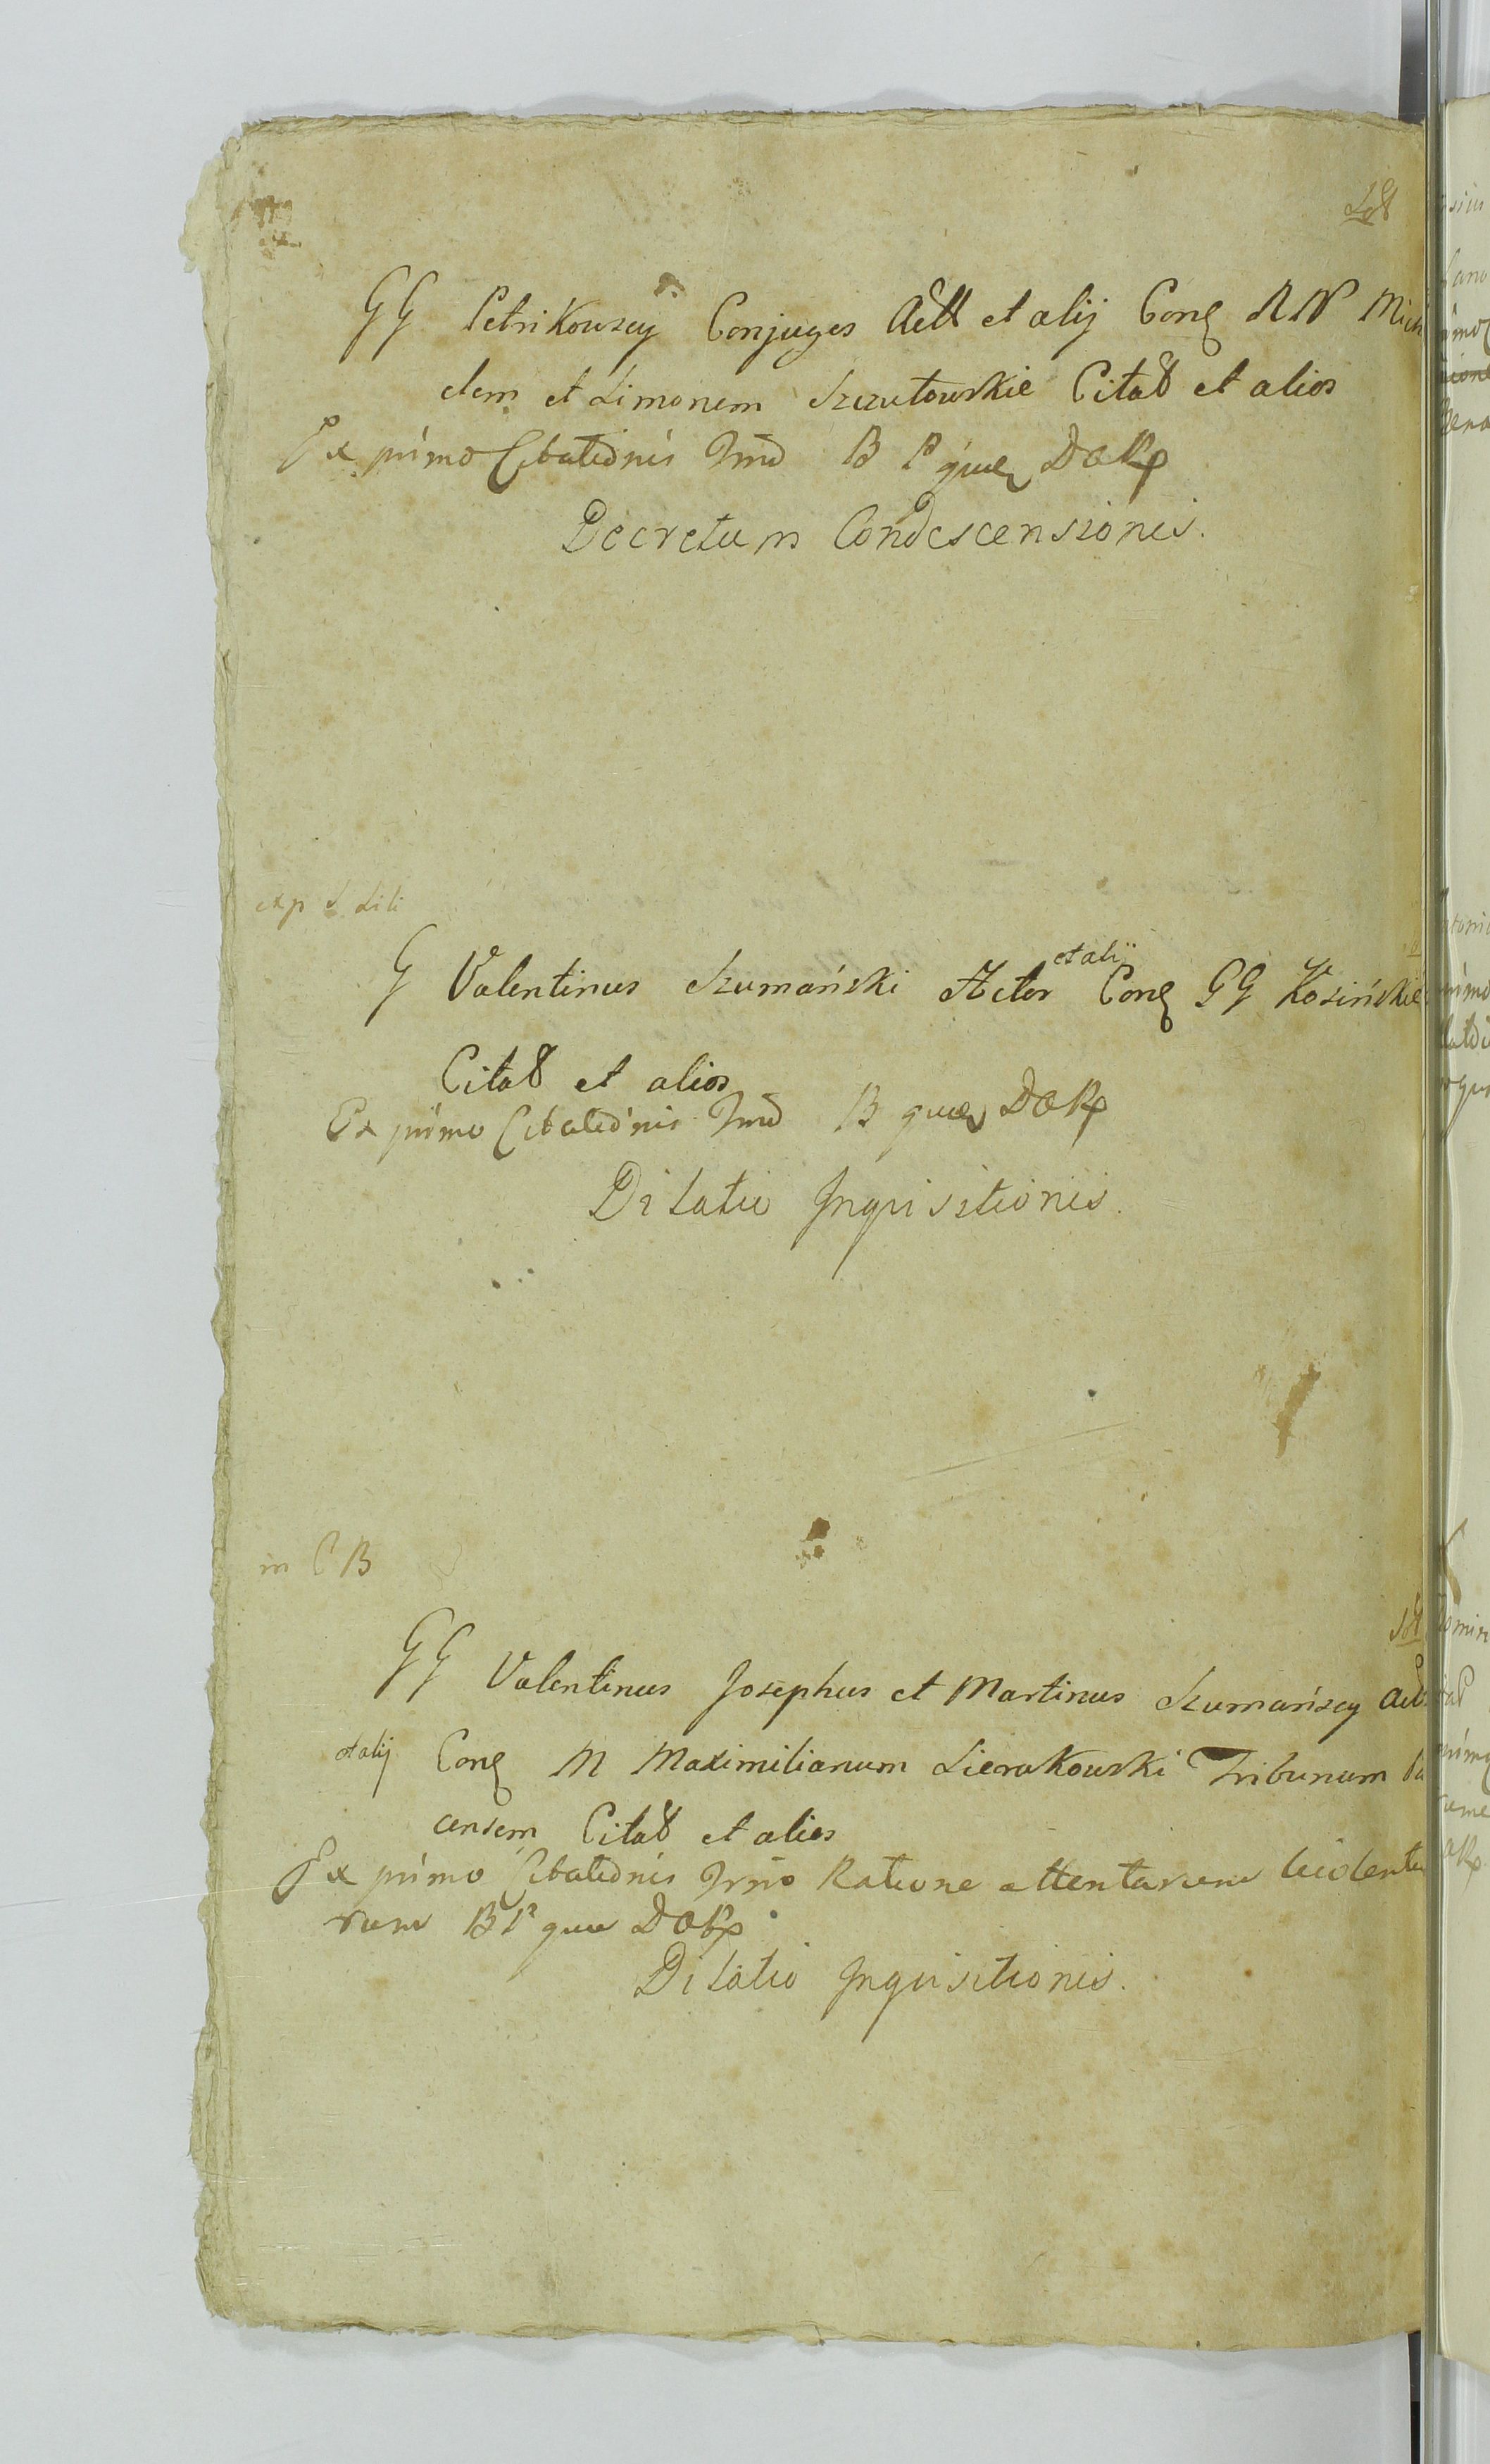 GG Petrikowscy Conjuges Actt et alij Conq NN Mich
elem et Simonem Szczutowskie Citatt et alios
Ex primo Citationis Tnno B P quaeq DORp
Decretum Condescensionis.
exp
G Valentinus Szumański Actor et alij Conq GG Kosińskie
Citatt et alios
Ex primo Citationis Tnno B quaeq DORp
Dilatio Inquisitionis.
in C B
GG Valentinus Josephus et Martinus Szumańscy Act
et alij Conq M Maximilianum Sierakowski Tribunum
censem Citatt et alios
Ex primo Citationis Tnno Ratione attentarum Violentia
rum B P quae DORp
Dilatio Inquisitionis.